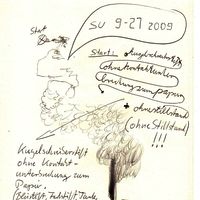 Start
SU 9-27 2009
Start: Kugelschreiberstift
(ohne Kontaktunter-
brechung zum Papier
+ ohne Stillstand
(ohne Stillstand)
!!!
Kugelschreiberstift
ohne Kontakt-
unterbrechung zum
Papier.
(Bleistift, Farbstift, Tusche